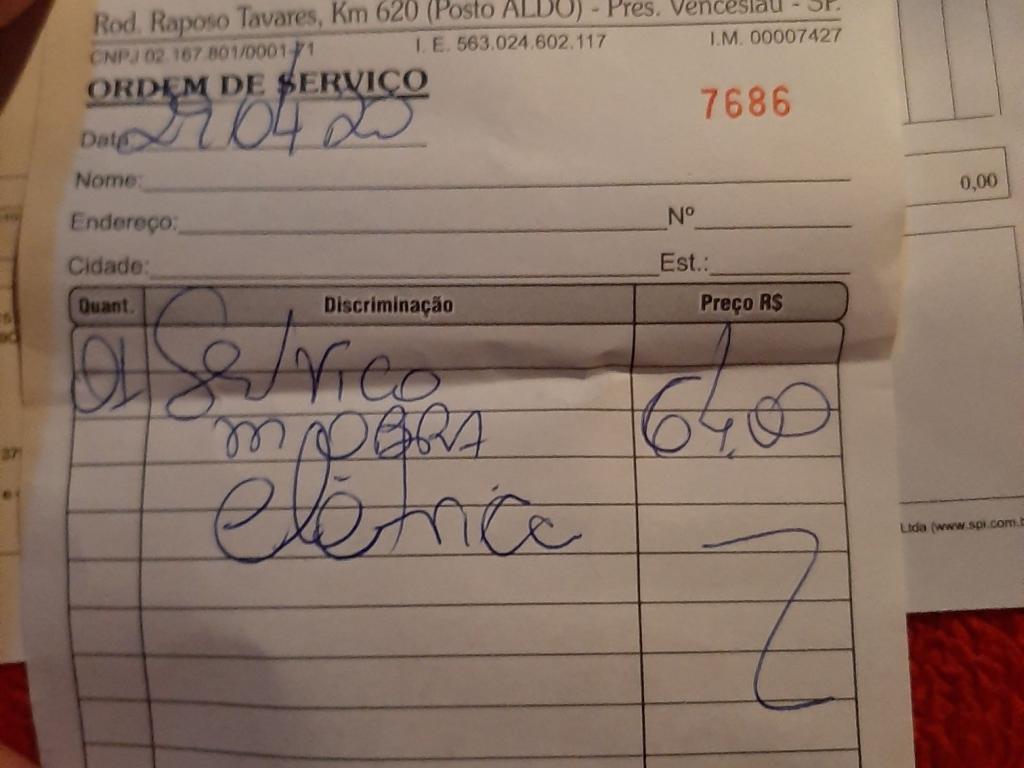 Rod. Raposo Tavares, Km 620 (Posto ALDO) - Pres. Venceslau - SP.
CNPJ 02.167.801/0001-71 I. E. 563.024.602.117 I.M. 00007427
ORDEM DE SERVIÇO
7686
Data 27 04 20
Nome:
Endereço: Nº
Cidade: Est.:
Quant. Discriminação Preço R$
01 Serviço 64,00
M OBRA
elétrica
0,00
Ltda (www.spi.com.b
37